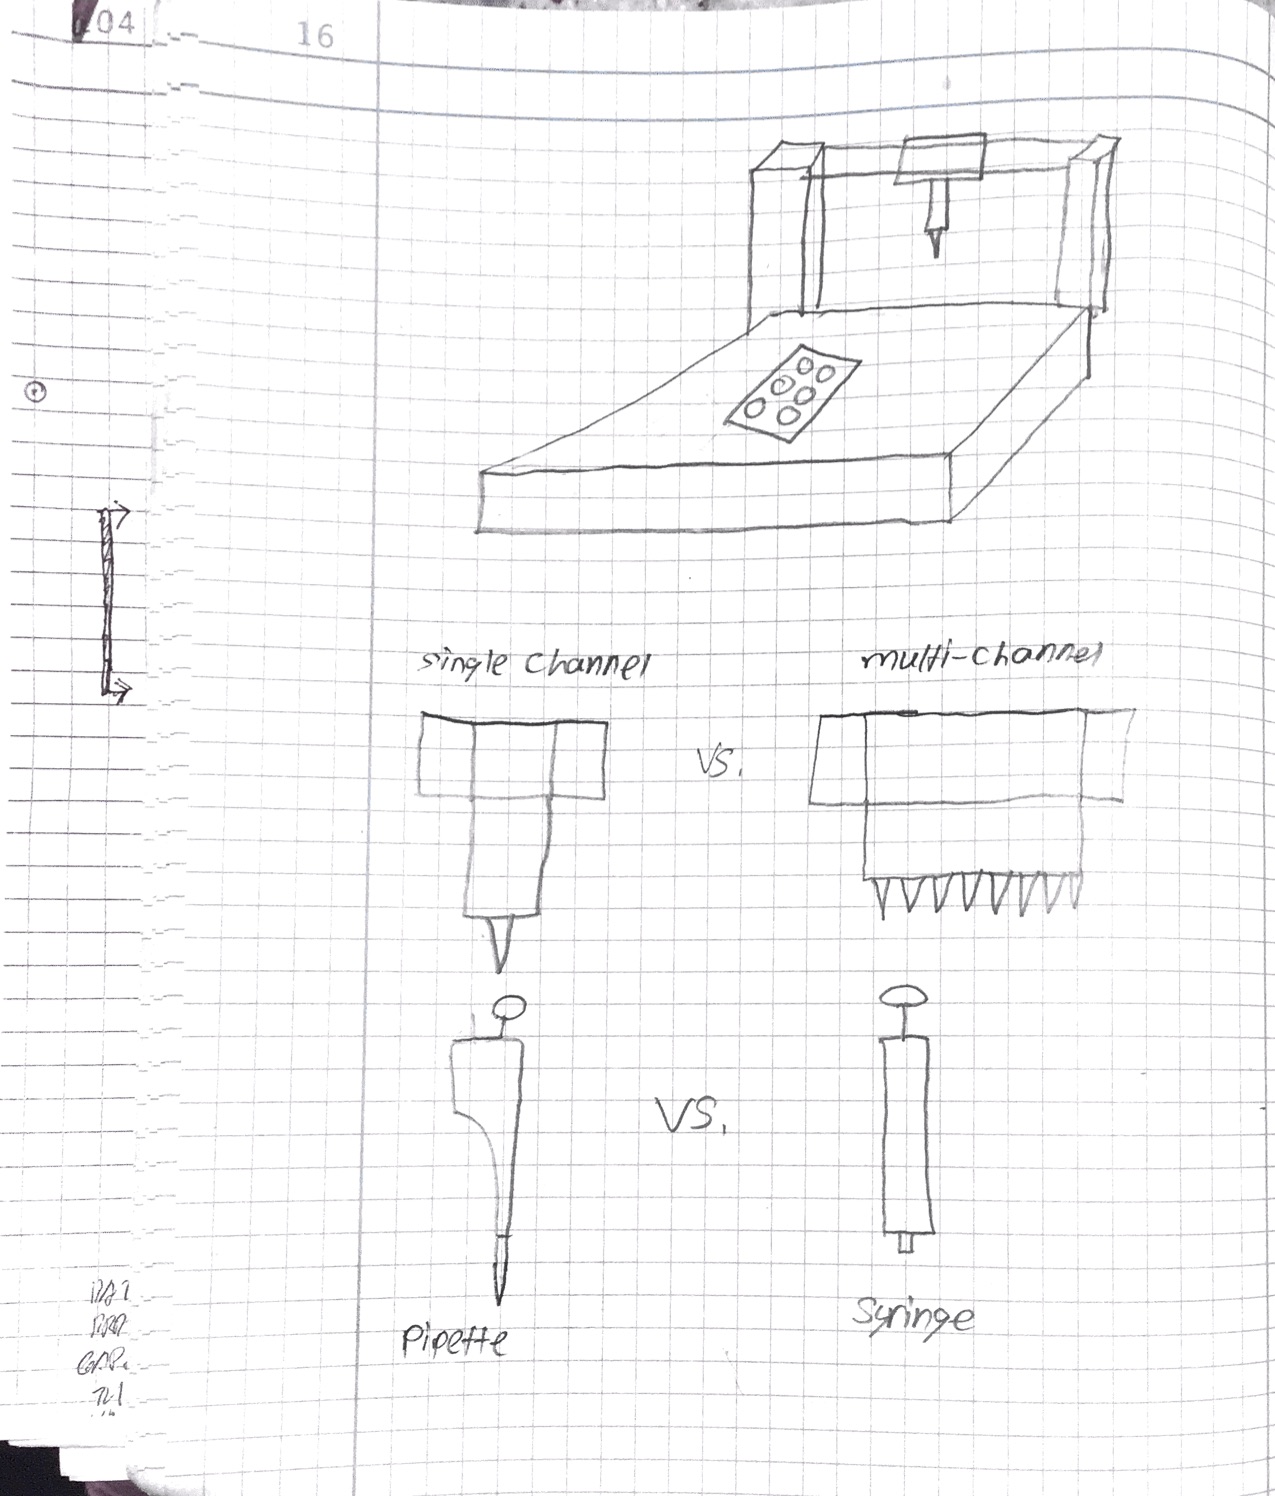 04
16
single channel
multi-channel
vs.
vs.
Pipette
Syringe